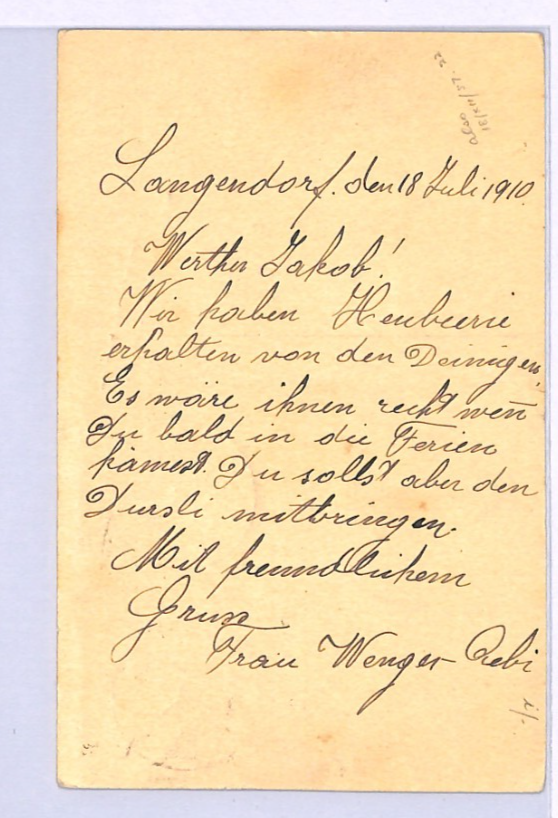 Langendorf. den 18 Juli 1910.
Werther Jakob!
Wir haben Heubeerie
erhalten von den Deinigen.
Es wäre ihnen recht wen̄
Du bald in die Ferien
kämest. Du sollst aber den
Dursli mitbringen.
Mit freundlichem
Gruss
Frau Wenger Aebi